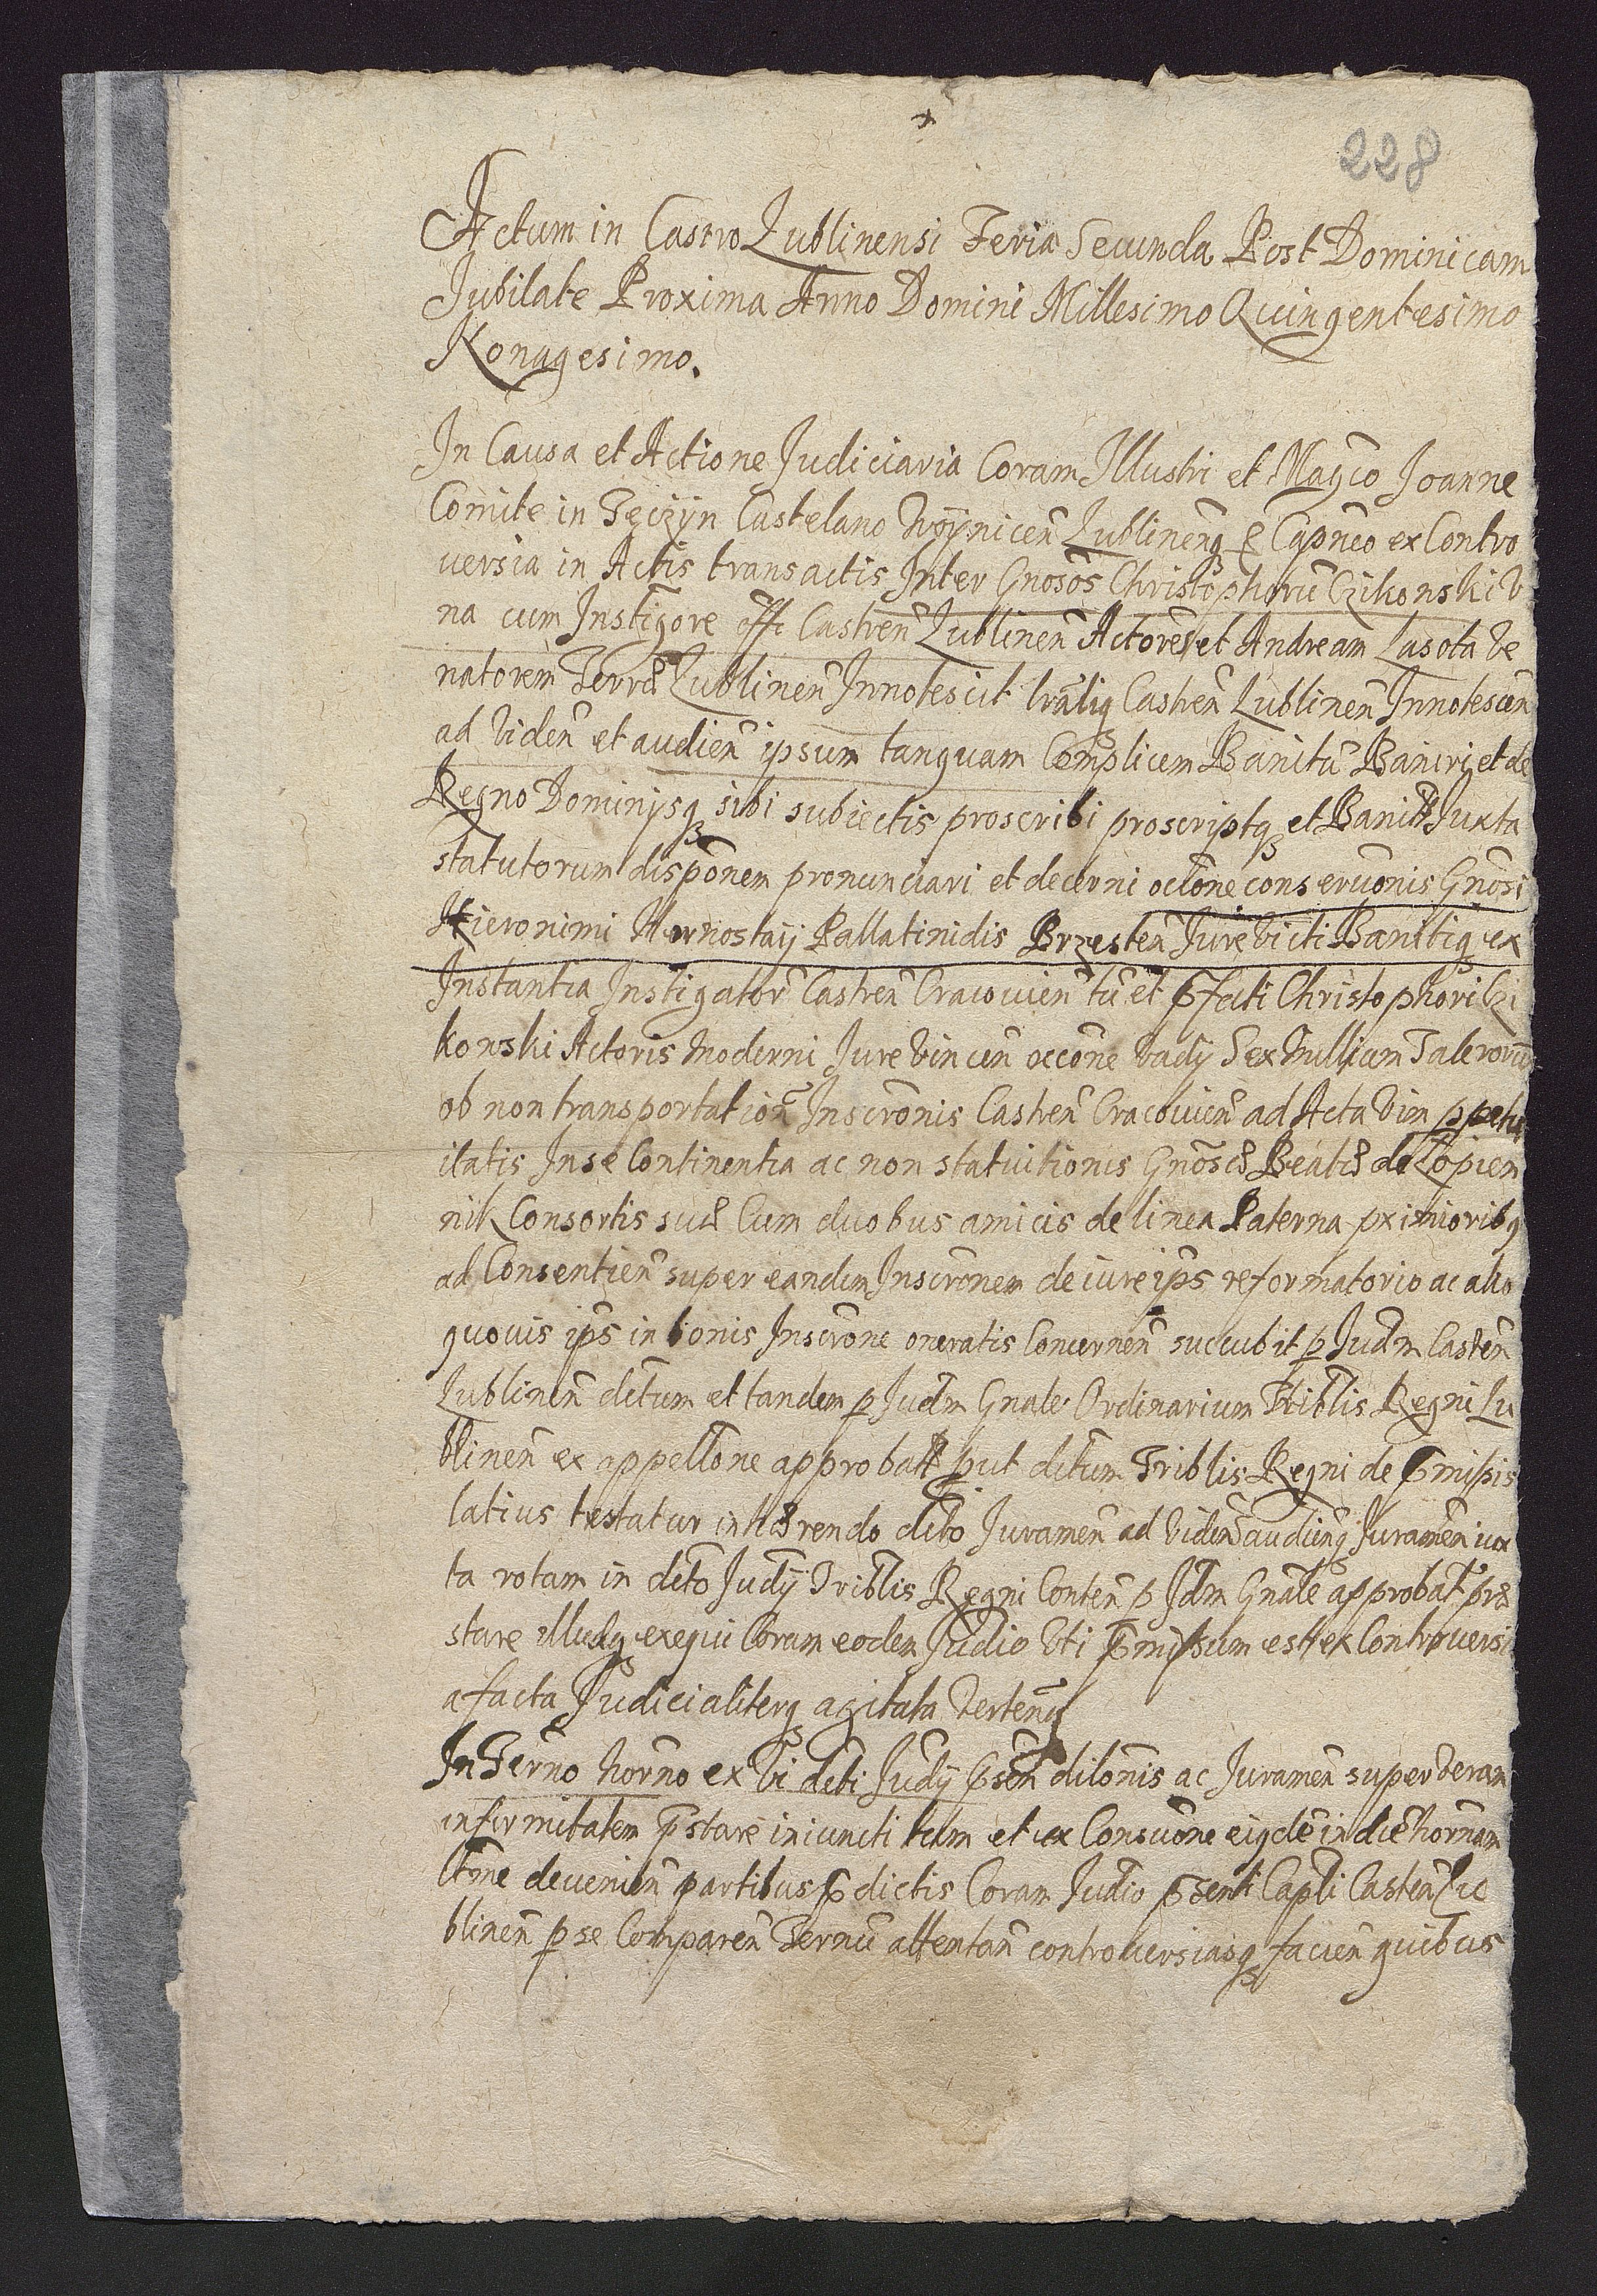 228
Actum in Castro Lublinensi Feria Secunda Post Dominicam
Jubilate Proxima Anno Domini Millesimo Quingentesimo
Nonagesimo.
In Causa et Actione Judiciaria Coram Illustri et Magco Joanne
Comite in Tęczyn Castelano Woynicen̄ Lublinenq̢ Capneo ex Contro
uersia in Actis transactis Inter Gnosos Christophorū Czikonski V
na cum Instigore offi Castren̄ Lublinen̄ Actores et Andream Lasota Ve
natorem Terræ Lublinen̄ Innotescit lraliq̢ Castren̄ Lublinen̄ Innotescen̄
ad viden̄ et audien̄ ipsum tanquam Complicem Banitū Baniri et de
Regno Dominijsq̢ sibi subiectis proscribi proscriptq̢ et Banit Juxta
statutorum disponem pronunciari et decerni occōne conseruonis Gnosi
Hieronimi Hornostaij Pallatinidis Brzesten̄ Jure Victi Banitiq̢ ex
Instantia Instigator̄ Castren̄ Cracouien̄ tū et p̄fati Christophori Czi
konski Actoris Moderni Jure Vincen̄ occōne Vadij Sex Millium Talerorum
ob non transportation̄ Inscronis Castren̄ Cracouien̄ ad Acta Vim ppetu
itatis In se Continentia ac non statuitionis Gnosæ Beatæ de Łopien
nik Consortis suæ Cum duobus amicis de linea Paterna pximioribq̢
ad Consentien̄ super eandem Inscronem de iure ips reformatorio ac alio
quouis ips in bonis Inscrone oneratis Concernen̄ succubit p Judm Casten̄
Lublinen̄ dctum et tandem p Judm Gnale Ordinarium Triblis Regni Lu
blinen̄ ex appellone approbat put dctum Triblis Regni de p̄missis
latius testatur inhærendo dcto Juramen̄ ad Viden̄ audienq̢ Juramen̄ iux
ta rotam in dcto Judij Triblis Regni Conten̄ p Jdm Gnale approbat præ
stare illudq̢ exequi Coram eodem Judio Vti p̄missum est ex Controuersi
a facta Judicialiterq̢ agitata Verten̄
In Termo horno ex Vi dcti Judij p̄sen̄ dilonis ac Juramen̄ super Veram
infirmitatem p̄stare iniuncti tum et ex Conseruone eiqde in diē hornam
ltime deuenien̄ partibus p̄dictis Coram Judio p̄senti Capli Casten̄ Lu
blinen̄ p se Comparen̄ Ternū attentan̄ controuersiasq̢ facien̄ quibus